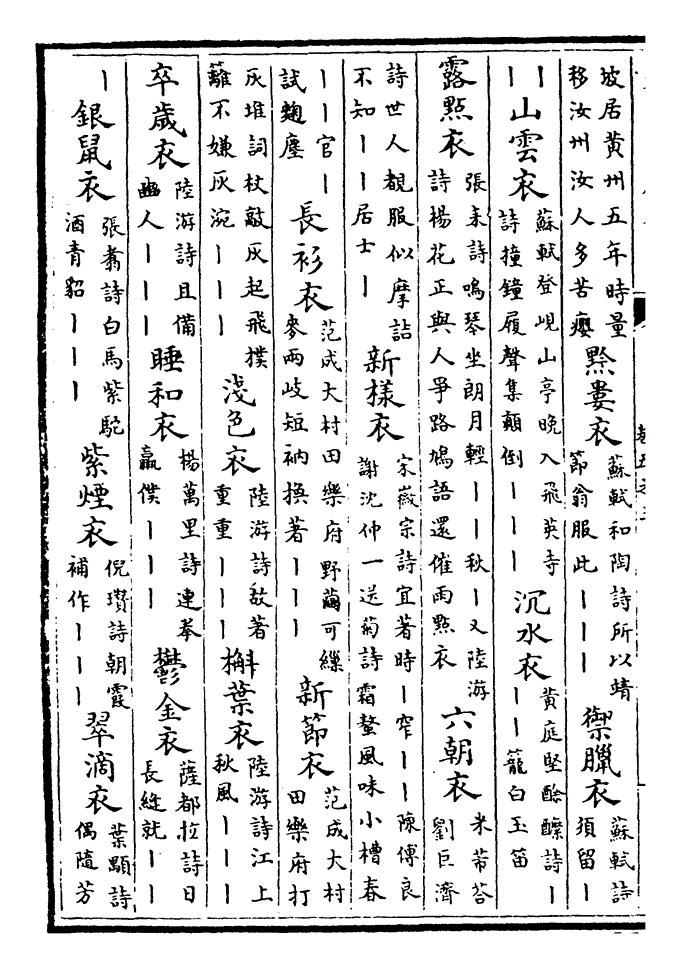 坡居黃州五年時量移汝州汝人多苦癭 黔婁衣 蘇軾和陶詩所以靖節翁服此丨丨丨 禦臘衣 蘇軾詩須留丨
丨丨 山雲衣 蘇軾登峴山亭晚入飛英寺詩撞鐘履聲集顛倒丨丨丨 沉水衣 黃庭堅酴醾詩丨丨丨籠白玉笛
露點衣 張耒詩鳴琴坐朗月輕丨丨秋丨又陸游詩楊花正與人爭路鳩語還催雨點衣 六朝衣 米芾荅劉巨濟
詩世人覩服似摩詰不知丨丨居士丨 新樣衣 宋徽宗詩宜著時丨窄丨丨陳傅良謝沈仲一送菊詩霜螯風味小槽春
丨丨官丨試麴塵 長衫衣 范成大村田樂府野繭可繅麥兩岐短衲換著丨丨丨 新節衣 范成大村田樂府打
灰堆詞杖敲灰起飛撲籬不嫌灰涴丨丨丨 淺色衣 陸游詩故著重重丨丨丨 槲葉衣 陸游詩江上秋風丨丨丨
卒歲衣 陸游詩且備幽人丨丨丨 睡和衣 楊萬里詩連拳羸僕丨丨丨 鬱金衣 薩都拉詩日長縫就丨丨
丨 銀鼠衣 張翥詩白馬紫駝酒青貂丨丨丨 紫煙衣 倪瓚詩朝霞補作丨丨丨 翠滴衣 葉顒詩偶隨芳